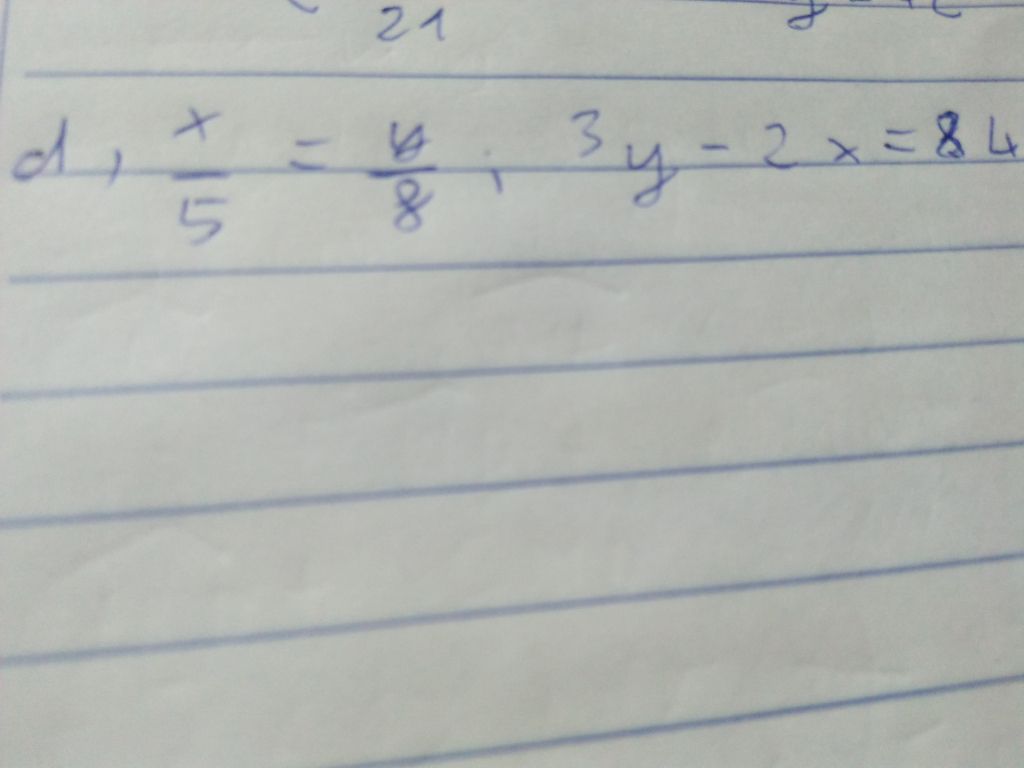 21
d, x/5 = y/8 ; 3y - 2x = 84